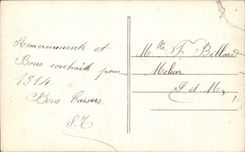 Remerciements et
Bons souhaits pour
1914
Bons Baisers
Mlle F. Billou
Melun
S. et M.